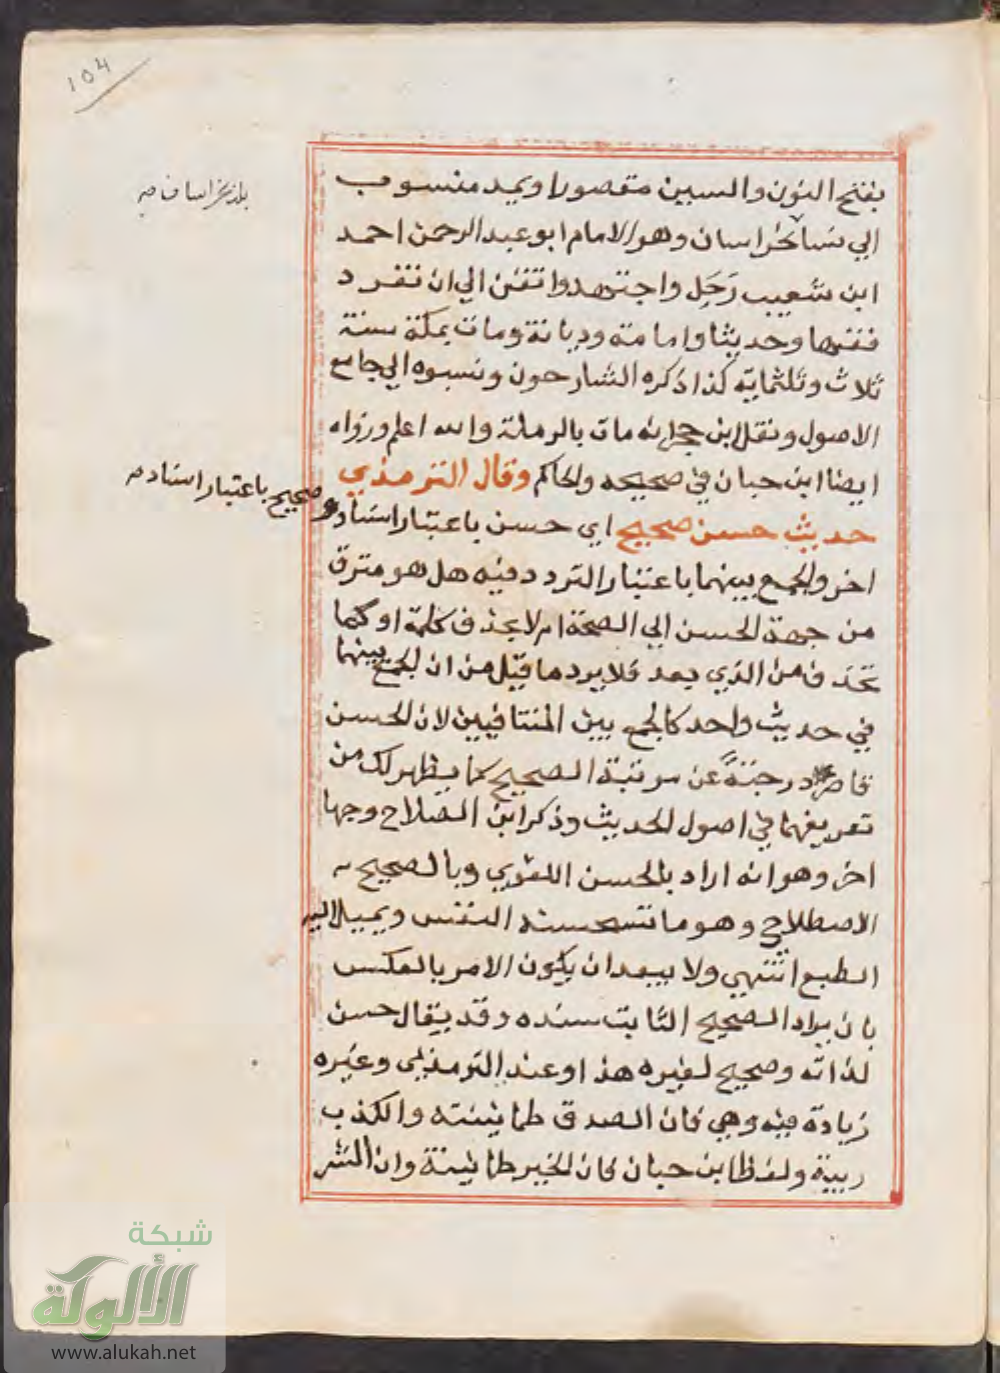 104
بفتح النون والسين مقصورا ويمد منسوب
الي نسا بخراسان وهو الامام ابو عبد الرحمن احمد
بلد بخراسان صح
ابن شعيب رَحَل واجتهد واتقن الي ان تفرد
فقها وحديثا وامامة وديانة ومات بمكة سنة
ثلاث وثلثماية كذا ذكره الشارحون ونسبوه الي جامع
الاصول ونقل ابن حجر انه مات بالرملة والله اعلم ورواه
ايضا ابن حبان في صحيحه والحاكم وقال الترمذي
حديث حسن صحيح اي حسن باعتبار اسناد
وصحيح باعتبار اسناد صح
اخر والجمع بينهما باعتبار التردد فيه هل هو مترق
من جهة الحسن الي الصحة ام لا بحذف كلمة او كما
تحذف من الذي بعد فلا يرد ما قيل من ان الجمع بينهما
في حديث واحد كالجمع بين المتنافيين لان الحسن
قاصر درجته عن مرتبة الصحيح كما يظهر لك من
تعريفهما في اصول الحديث وذكر ابن الصلاح وجها
اخر وهو انه اراد بالحسن اللغوي وبالصحيح
الاصطلاحي وهو ما تستحسنه النفس ويميل اليه
الطبع انتهي ولا يبعد ان يكون الامر بالعكس
بان يراد الصحيح الثابت سنده وقد يقال حسن
لذاته وصحيح لغيره هذا وعند الترمذي وغيره
زيادة فيه وهي فان الصدق طمانينة والكذب
ريبة ولفظ ابن حبان فان الخير طمانينة وان الشر
شبكة
الألوكة
www.alukah.net